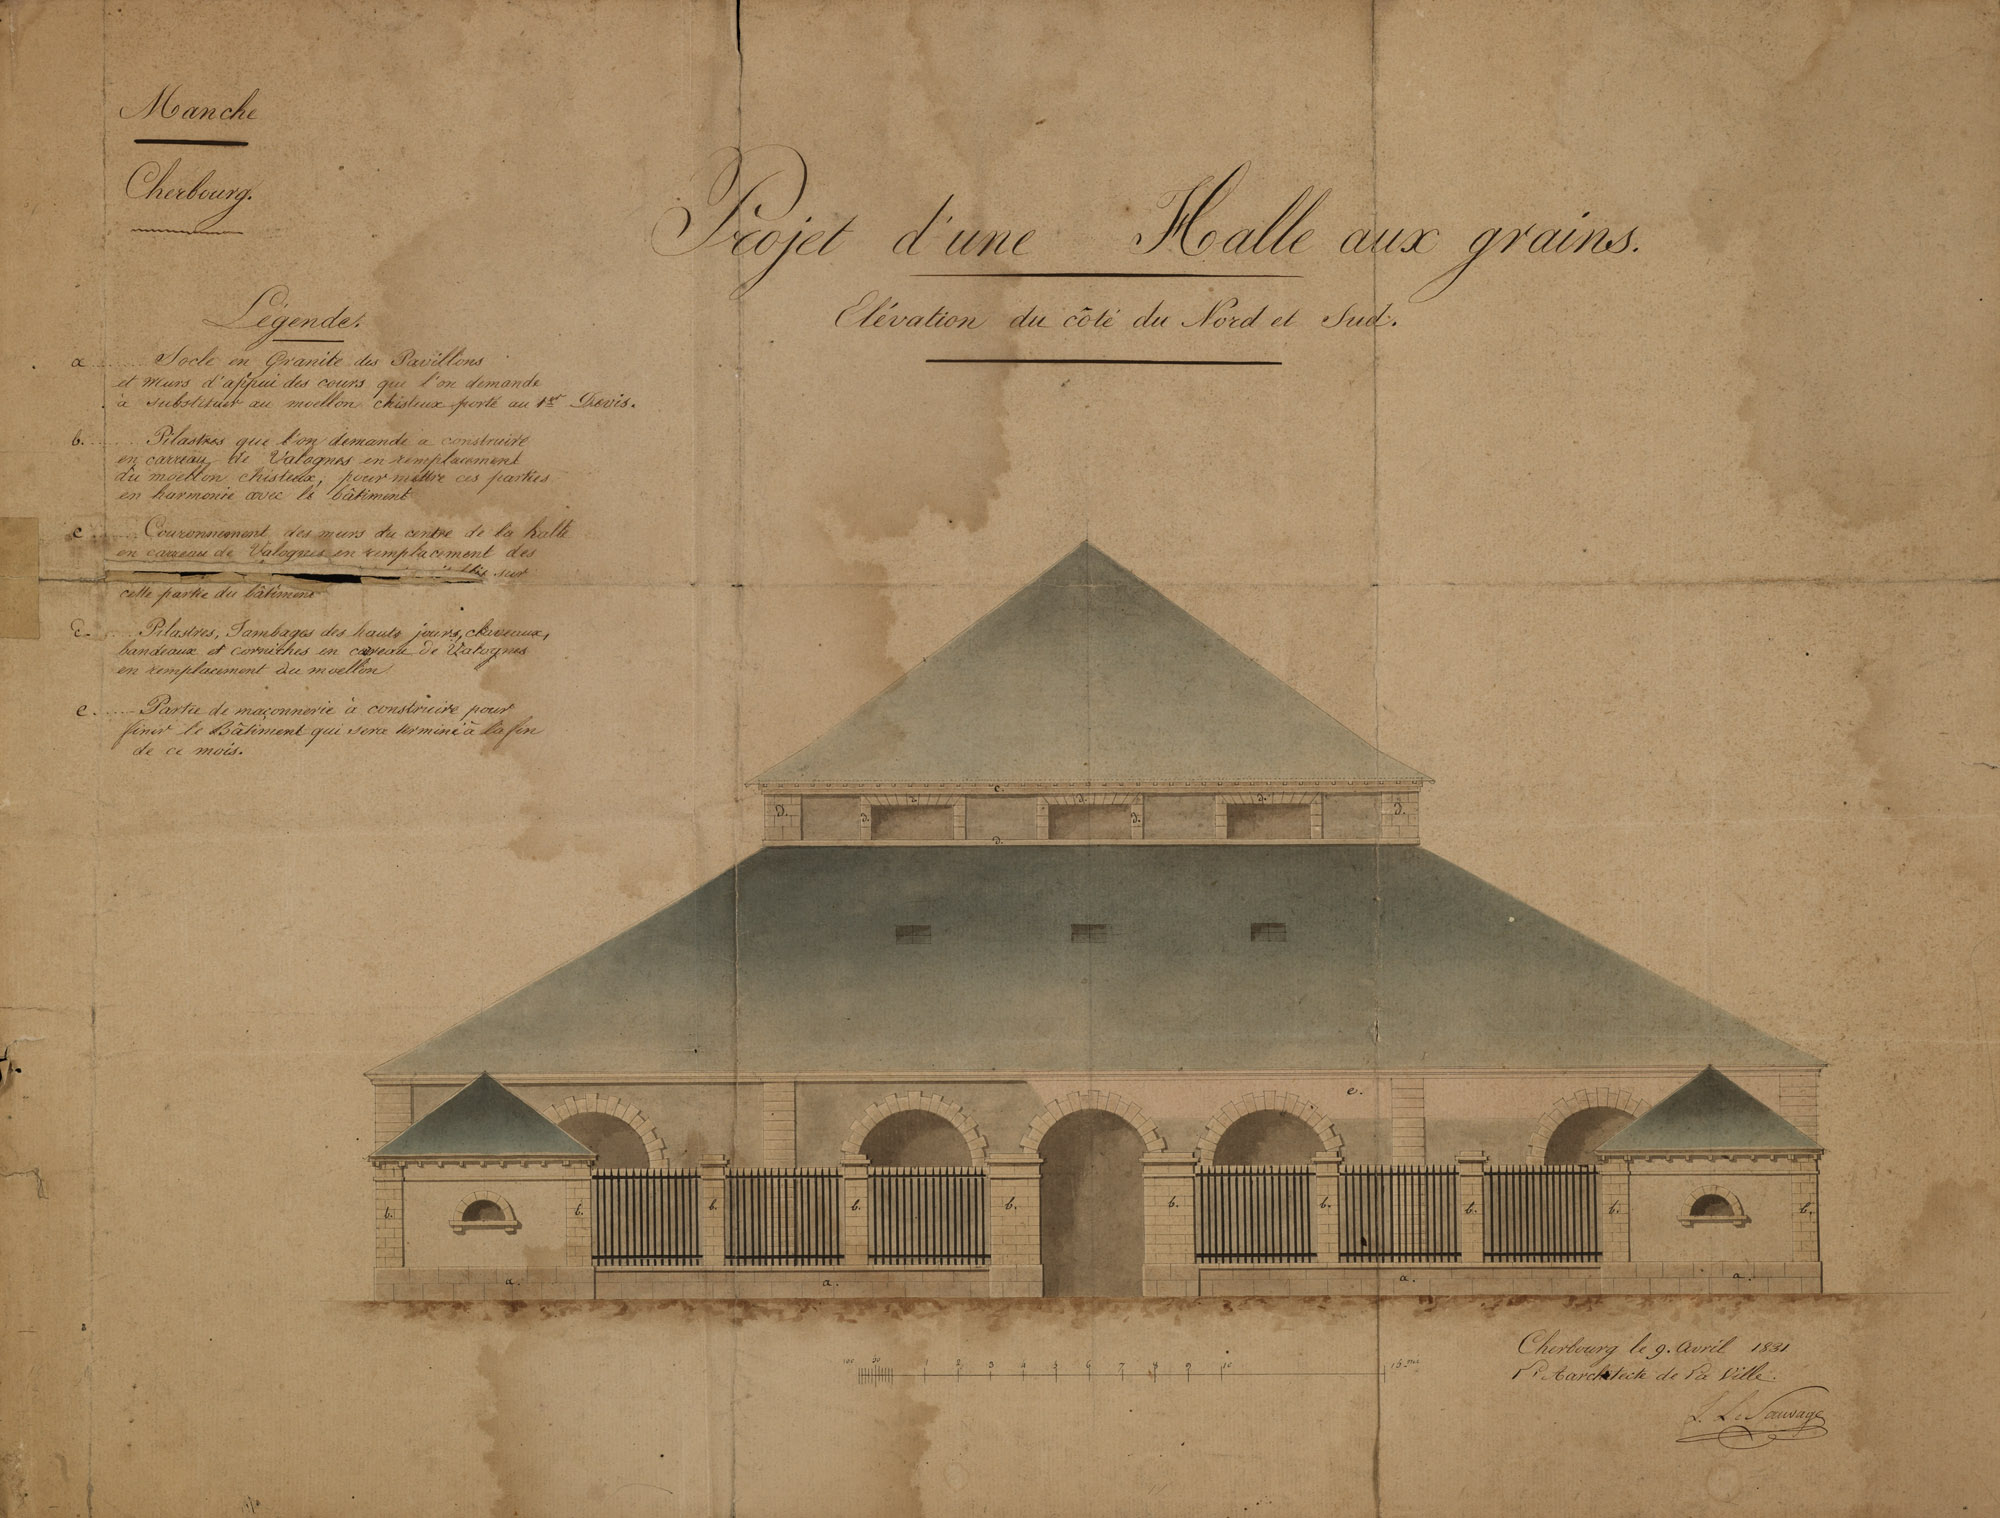 Manche
Cherbourg.
Projet d'une Halle aux grains.
Elévation du côté du Nord et Sud.
Légende.
a ........ Socle en Granite des Pavillons
et murs d'appui des cours que l'on demande
à substituer au moellon chisteux porté au 1er Devis.
b. ........ Pilastres que l'on demande a construire
en carreau de Valognes en remplacement
du moellon chisteux, pour mettre ces parties
en harmonie avec le bâtiment
c ........ Couronnement des murs du centre de la halle
en carreau de Valognes en remplacement des
sur
cette partie du bâtiment
d. ..... Pilastres, Jambages des hauts jours, claveaux,
bandeaux et corniches en carreau de Valognes
en remplacement du moellon
e. ........ Partie de maçonnerie à construire pour
finir le Bâtiment qui sera terminé à la fin
de ce mois.
c.
d. d. d. d. d. d. d.
d.
e.
b. b. b. b. b. b. b. b. b. b.
a. a. a. a.
100 50 1 2 3 4 5 6 7 8 9 10 15 mes
Cherbourg le 9. Avril 1831
L'Aarchitecte de La Ville.
L. Le Sauvage